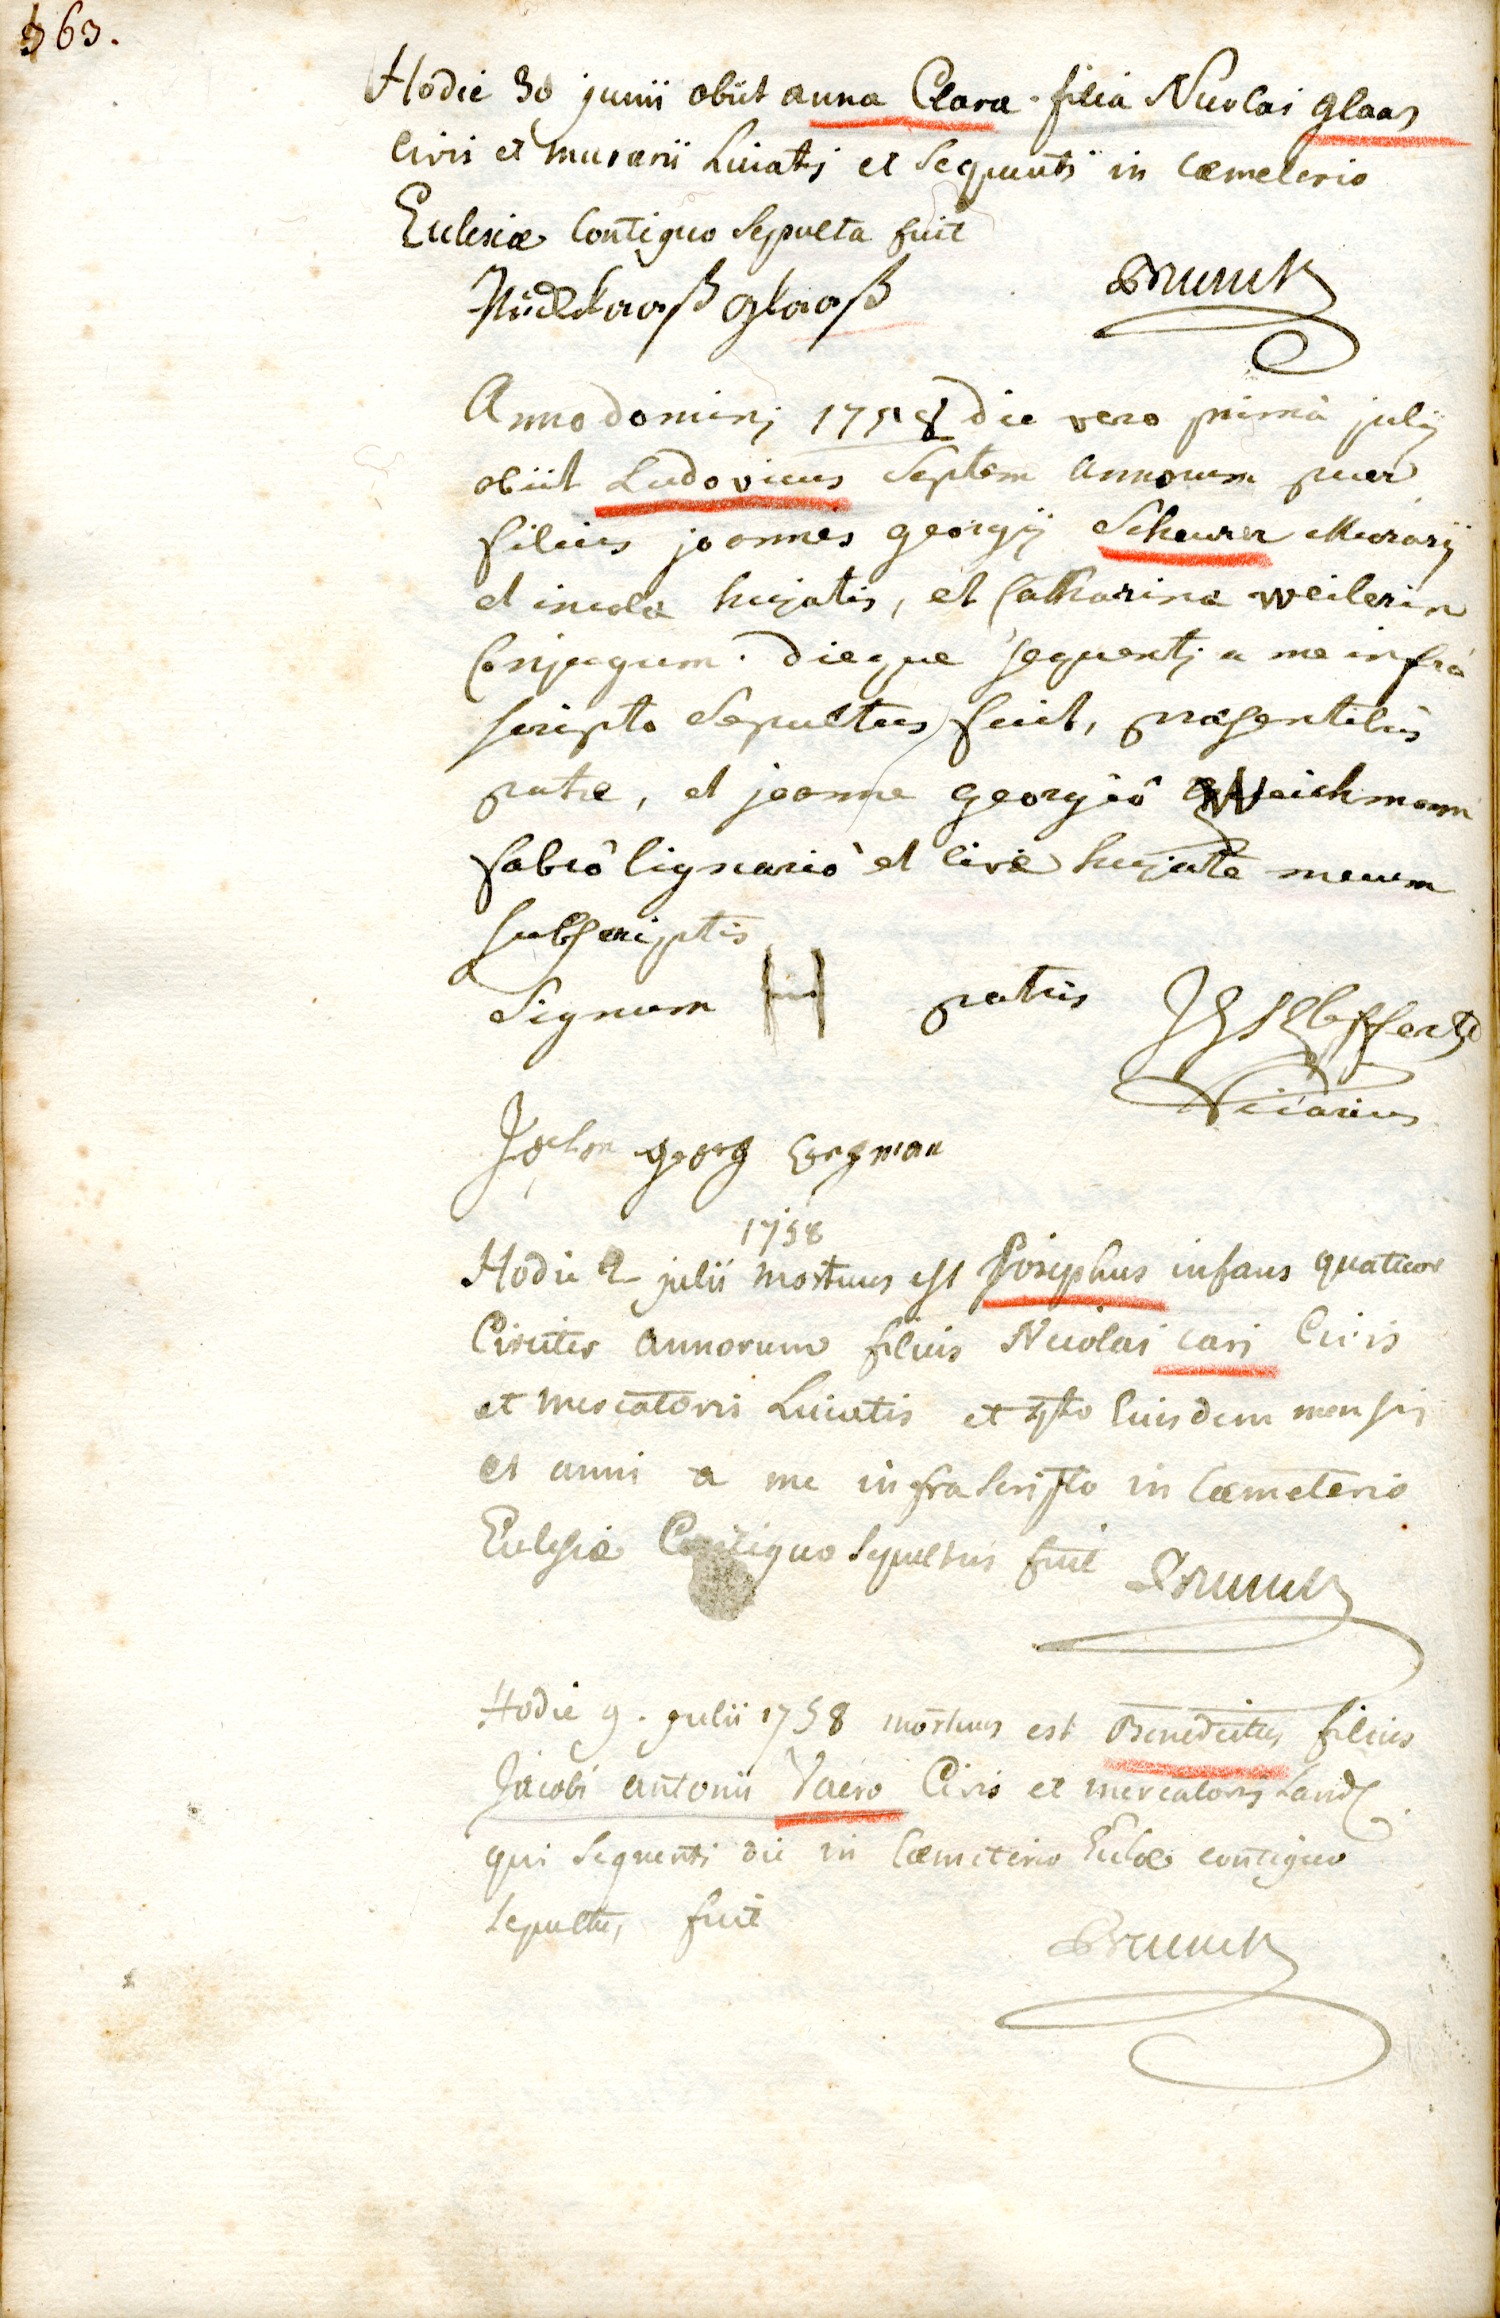 363.
Hodie 30 junii obiit anna Clara filia Nicolai glaas
Civis et murarii huiatis et sequenti in Cœmeterio
Ecclesiæ Contiguo Sepulta fuit
glaaß Brunck
Anno domini 1758 die vero primâ julij
obiit Ludovicus septem annorum puer
filius joannes georgij Scheurer Murarij
et incolæ hujatis, et Catharina weilerin
Conjugum. dieque sequenti a me infrà
scripto sepultus fuit, præsentibus
patre, et joanne georgiô Weichmann
fabrô lignariô et cive hujate mecum
subscriptis
Signum H patris
Vicarius
georg
1758
Hodie 2 julii mortuus est Josephus infans quatuor
Circiter annorum filius Nicolai cari Civis
et mercatoris huiatis et Eiusdem mensis
et anni a me infra scripto in Cœmeterio
Eclesiæ Contiguo sepultus fuit Brunck
Hodie 9. Julii 1758 mortuus est Benedictus filius
Jacobi antonii Vacro Civis et mercatoris Land
qui sequenti die in Cœmeterio Eclæ contiguo
sepultus fuit
Brunck